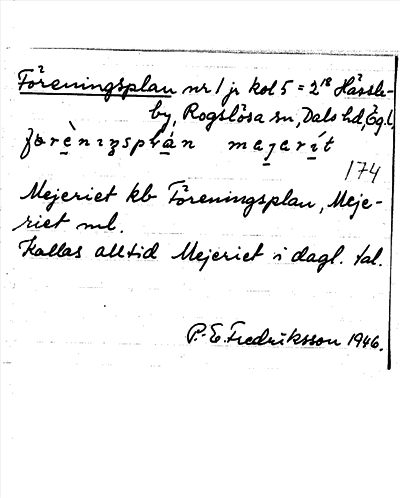 Föreningsplan nr 1 jr kol 5 = 2¹⁸ Hässle-
by, Rogslösa sn, Dals hd, Ög.l.
174
Mejeriet kb Föreningsplan, Meje-
riet ml.
Kallas alltid Mejeriet i dagl. tal.
P. E. Fredriksson 1946.